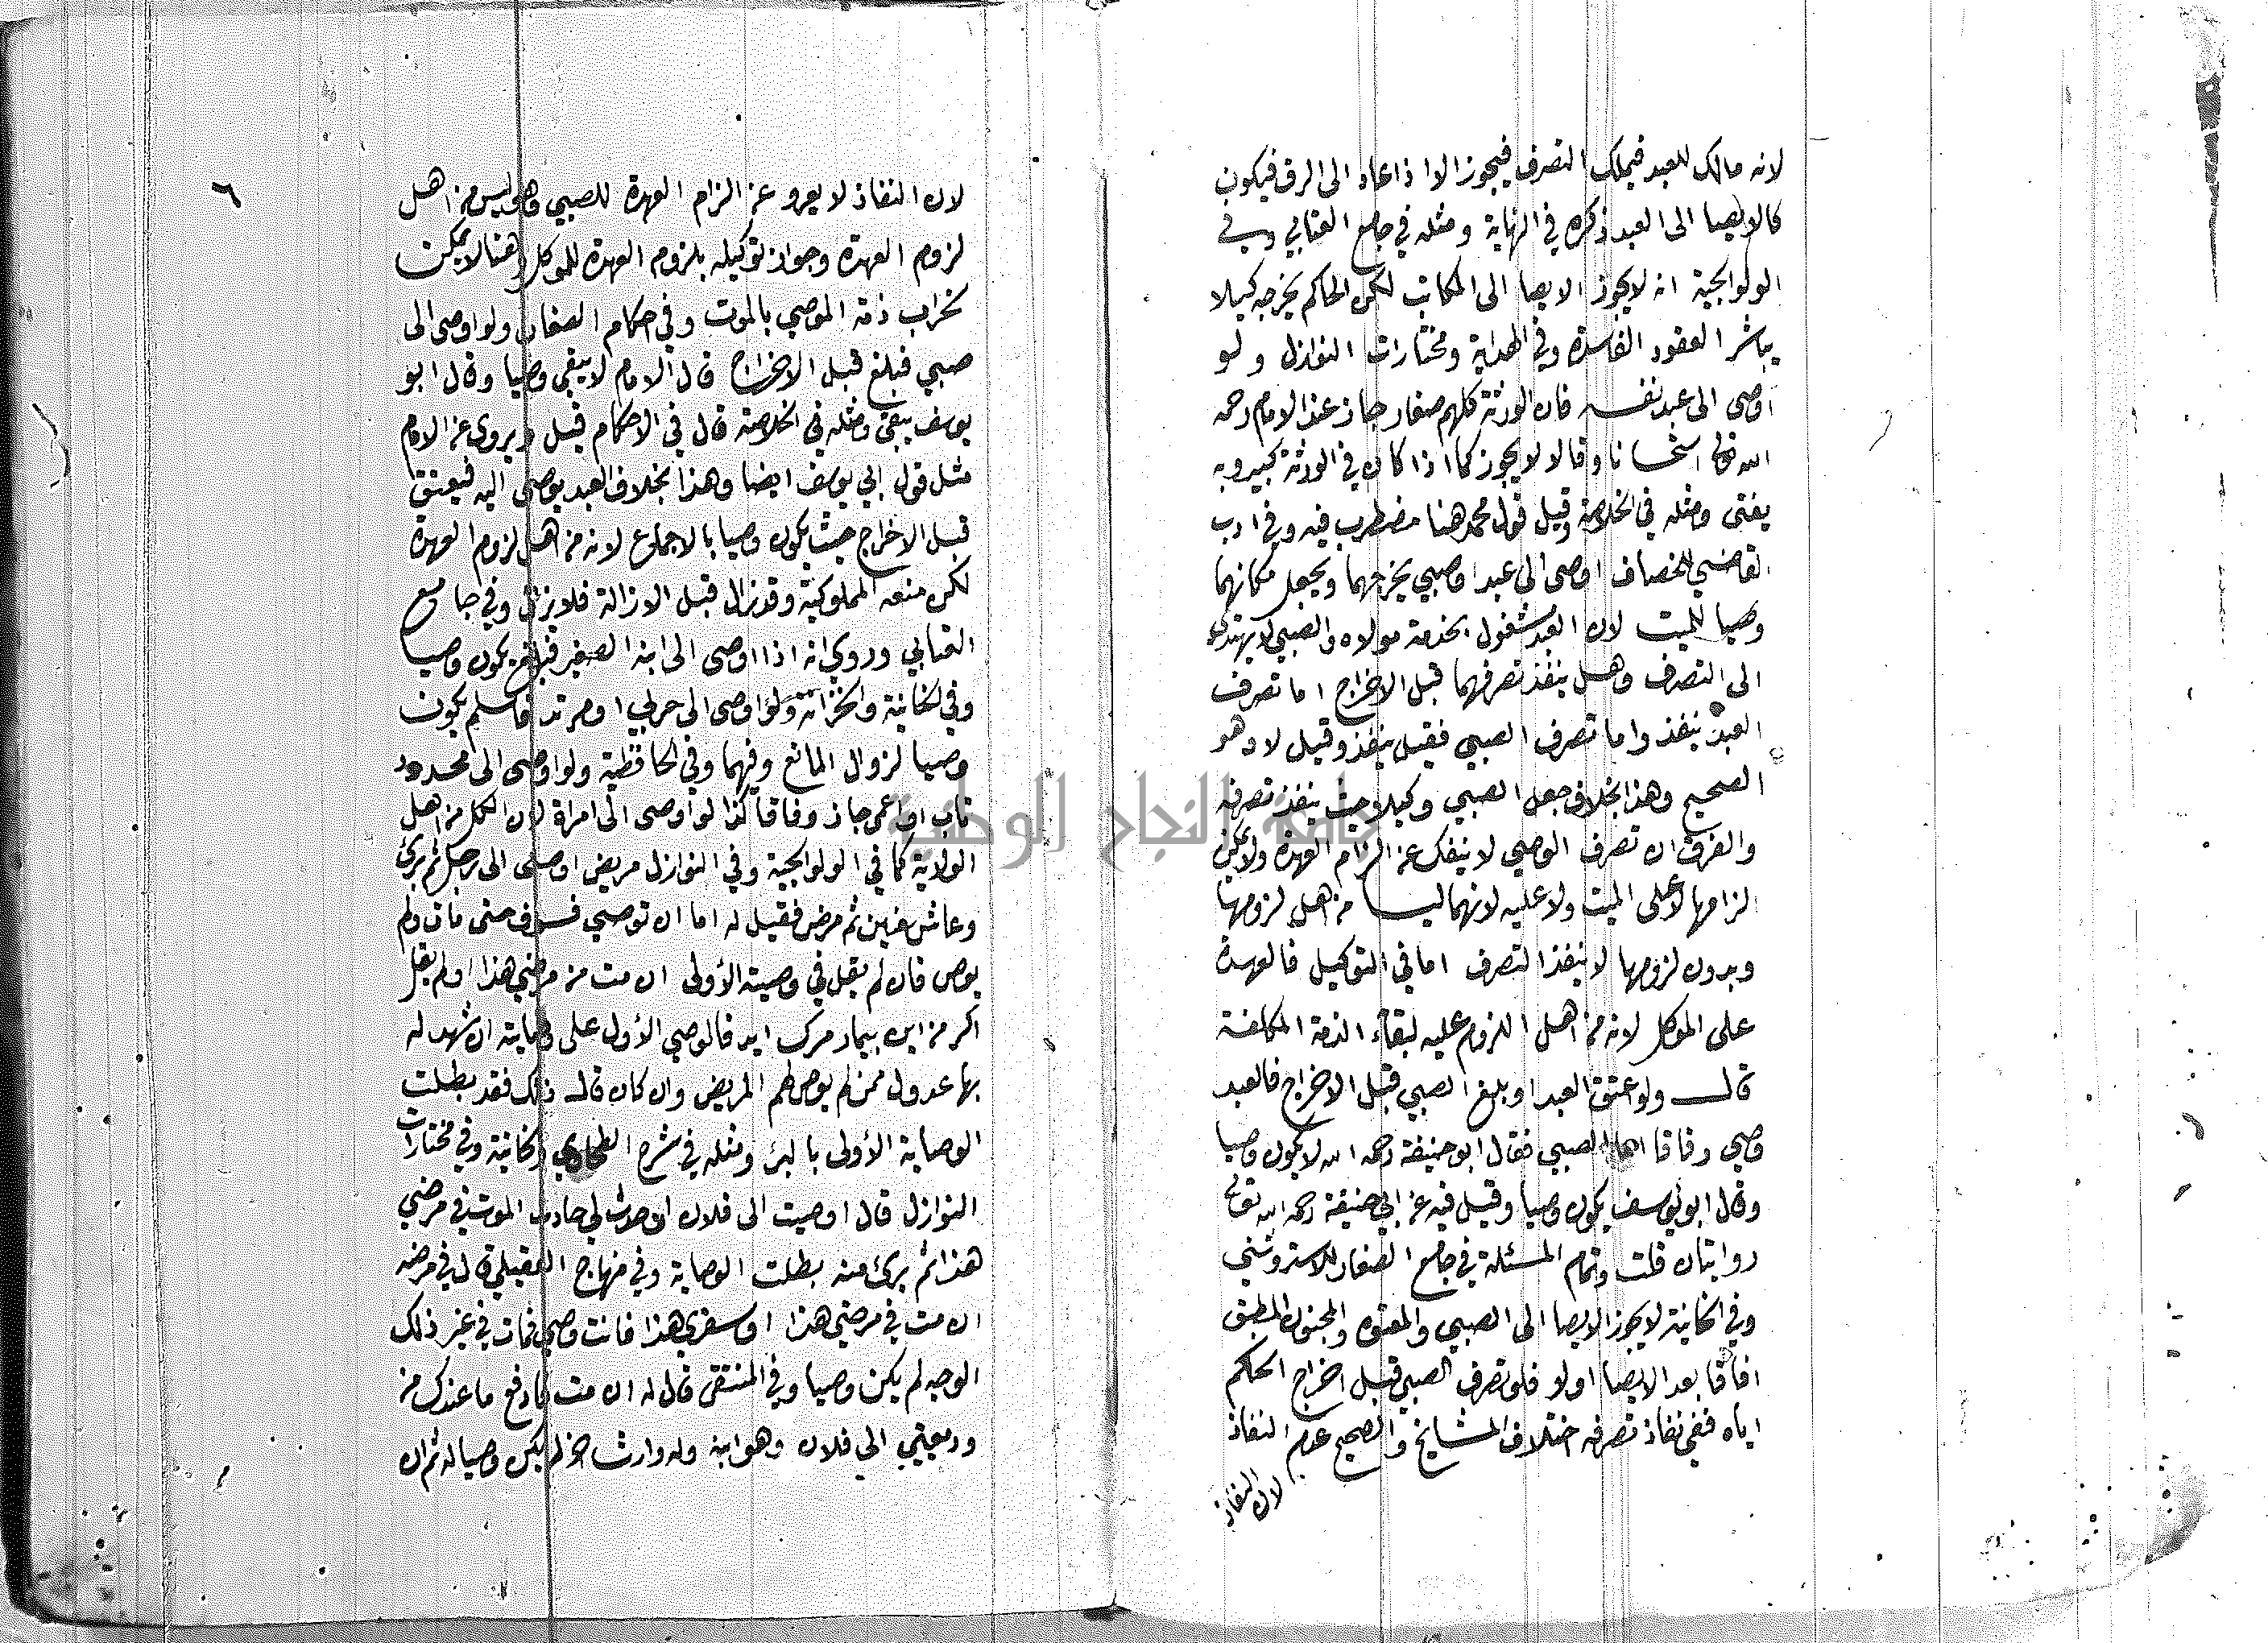 لانه مالك للعبد فيملك التصرف فيجوز الا اذا عاد الى الرق فيكون
كالايصا الى العبد ذكره في النهاية ومثله في جامع العتابي وفي
الولوالجية انه لا يجوز الايصا الى المكاتب لكن الحاكم يخرجه كيلا
يباشر العقود الفاسدة وفي الهداية ومختارات النوازل ولو
اوصى الى عبد نفسه فان الورثة كلهم صغار جاز عند الامام رحمه
الله تعالى استحسانا وقالا لا يجوز كما اذا كان في الورثة كبير وبه
يفتى ومثله في الخلاصة وقيل قول محمد هنا مضطرب فيه وفي ادب
القاضي للخصاف اوصى الى عبد او صبي يخرجهما ويجعل مكانهما
وصيا للميت لان العبد مشغول بخدمة مولاه والصبي لا يهتدي
الى التصرف وهل ينفذ تصرفهما قبل الاخراج اما تصرف
العبد ينفذ واما تصرف الصبي فقيل ينفذ وقيل لا وهو
الصحيح وهذا بخلاف جعل الصبي وكيلا حيث ينفذ تصرفه
والفرق ان تصرف الوصي لا ينفك عن الزام العهدة ولا يمكن
الزامها لا على الميت ولا عليه لانهما ليسا من اهل لزومها
وبدون لزومها لا ينفذ التصرف اما في التوكيل فالعهدة
على الموكل لانه من اهل اللزوم عليه لبقاء الذمة المكلفة
قال ولو عتق العبد او بلغ الصبي قبل الاخراج فالعبد
وصي وفاقا اما الصبي فقال ابو حنيفة رحمه الله لا يكون وصيا
وقال ابو يوسف يكون وصيا وقيل فيه عن ابي حنيفة رحمه الله تعالى
روايتان قلت وتمام المسئلة في جامع الصغار للاستروشني
وفي الخانية لا يجوز الايصا الى الصبي والمعتوه والمجنون المطبق
افاقا بعد الايصا او لا فلو تصرف الصبي قبل اخراج الحاكم
اياه ففي نفاذ تصرفه اختلاف المشايخ والصحيح عدم النفاذ
لان النفاذ
٦
لان النفاذ لا يعرو عن الزام العهدة للصبي وهو ليس من اهل
لزوم العهدة وجواز توكيله بلزوم العهدة للموكل وهنا لا يمكن
لخراب ذمة الموصي بالموت وفي احكام الصغار ولو اوصى الى
صبي فبلغ قبل الاخراج قال الامام لا يبقى وصيا وقال ابو
يوسف يبقى ومثله في الخلاصة قال في الاحكام قيل ويروى عن الامام
مثل قول ابي يوسف ايضا وهذا بخلاف العبد يوصى اليه فيعتق
قبل الاخراج حيث يكون وصيا بالاجماع لانه من اهل لزوم العهدة
لكن منعه المملوكية وقد زال قبل الازالة فلا يزال وفي جامع
العتابي وروي انه اذا اوصى الى ابنه الصغير فبلغ يكون وصيا
وفي الخانية والخزانة ولو اوصى الى حربي او مرتد فاسلم يكون
وصيا لزوال المانع وفيهما وفي الحافظية ولو اوصى الى محدود
تاب او اعمى جاز وفاقا كذا لو اوصى الى امراة لان الكل من اهل
الولاية كما في الولوالجية وفي النوازل مريض اوصى الى رجل ثم برئ
وعاش سنين ثم مرض فقيل له اما ان توصي فسوف حتى مات ولم
يوص فان لم يقل في وصيته الأولى ان مت من مرضي هذا او لم يقل
اكر من اين بيمار مرك ايد فالوصي الأول على وصايته ان شهد له
بها عدول ممن لم يوص لهم المريض وان كان قال ذلك فقد بطلت
الوصاية الأولى بالبرء ومثله في شرح الطحاوي والخانية وفي مختارات
النوازل قال اوصيت الى فلان ان حدث لي حادث الموت في مرضي
هذا ثم برئ منه بطلت الوصاية وفي منهاج العقيلي قال في مرضه
ان مت في مرضي هذا او سفري هذا فانت وصي فمات في غير ذلك
الوجه لم يكن وصيا وفي المنتقى قال له ان مت فادفع ما عندك من
وديعتي الى فلان وهو ابنه وله وارث اخر لم يكن وصيا له ثم ان
جامعة النجاح الوطنية